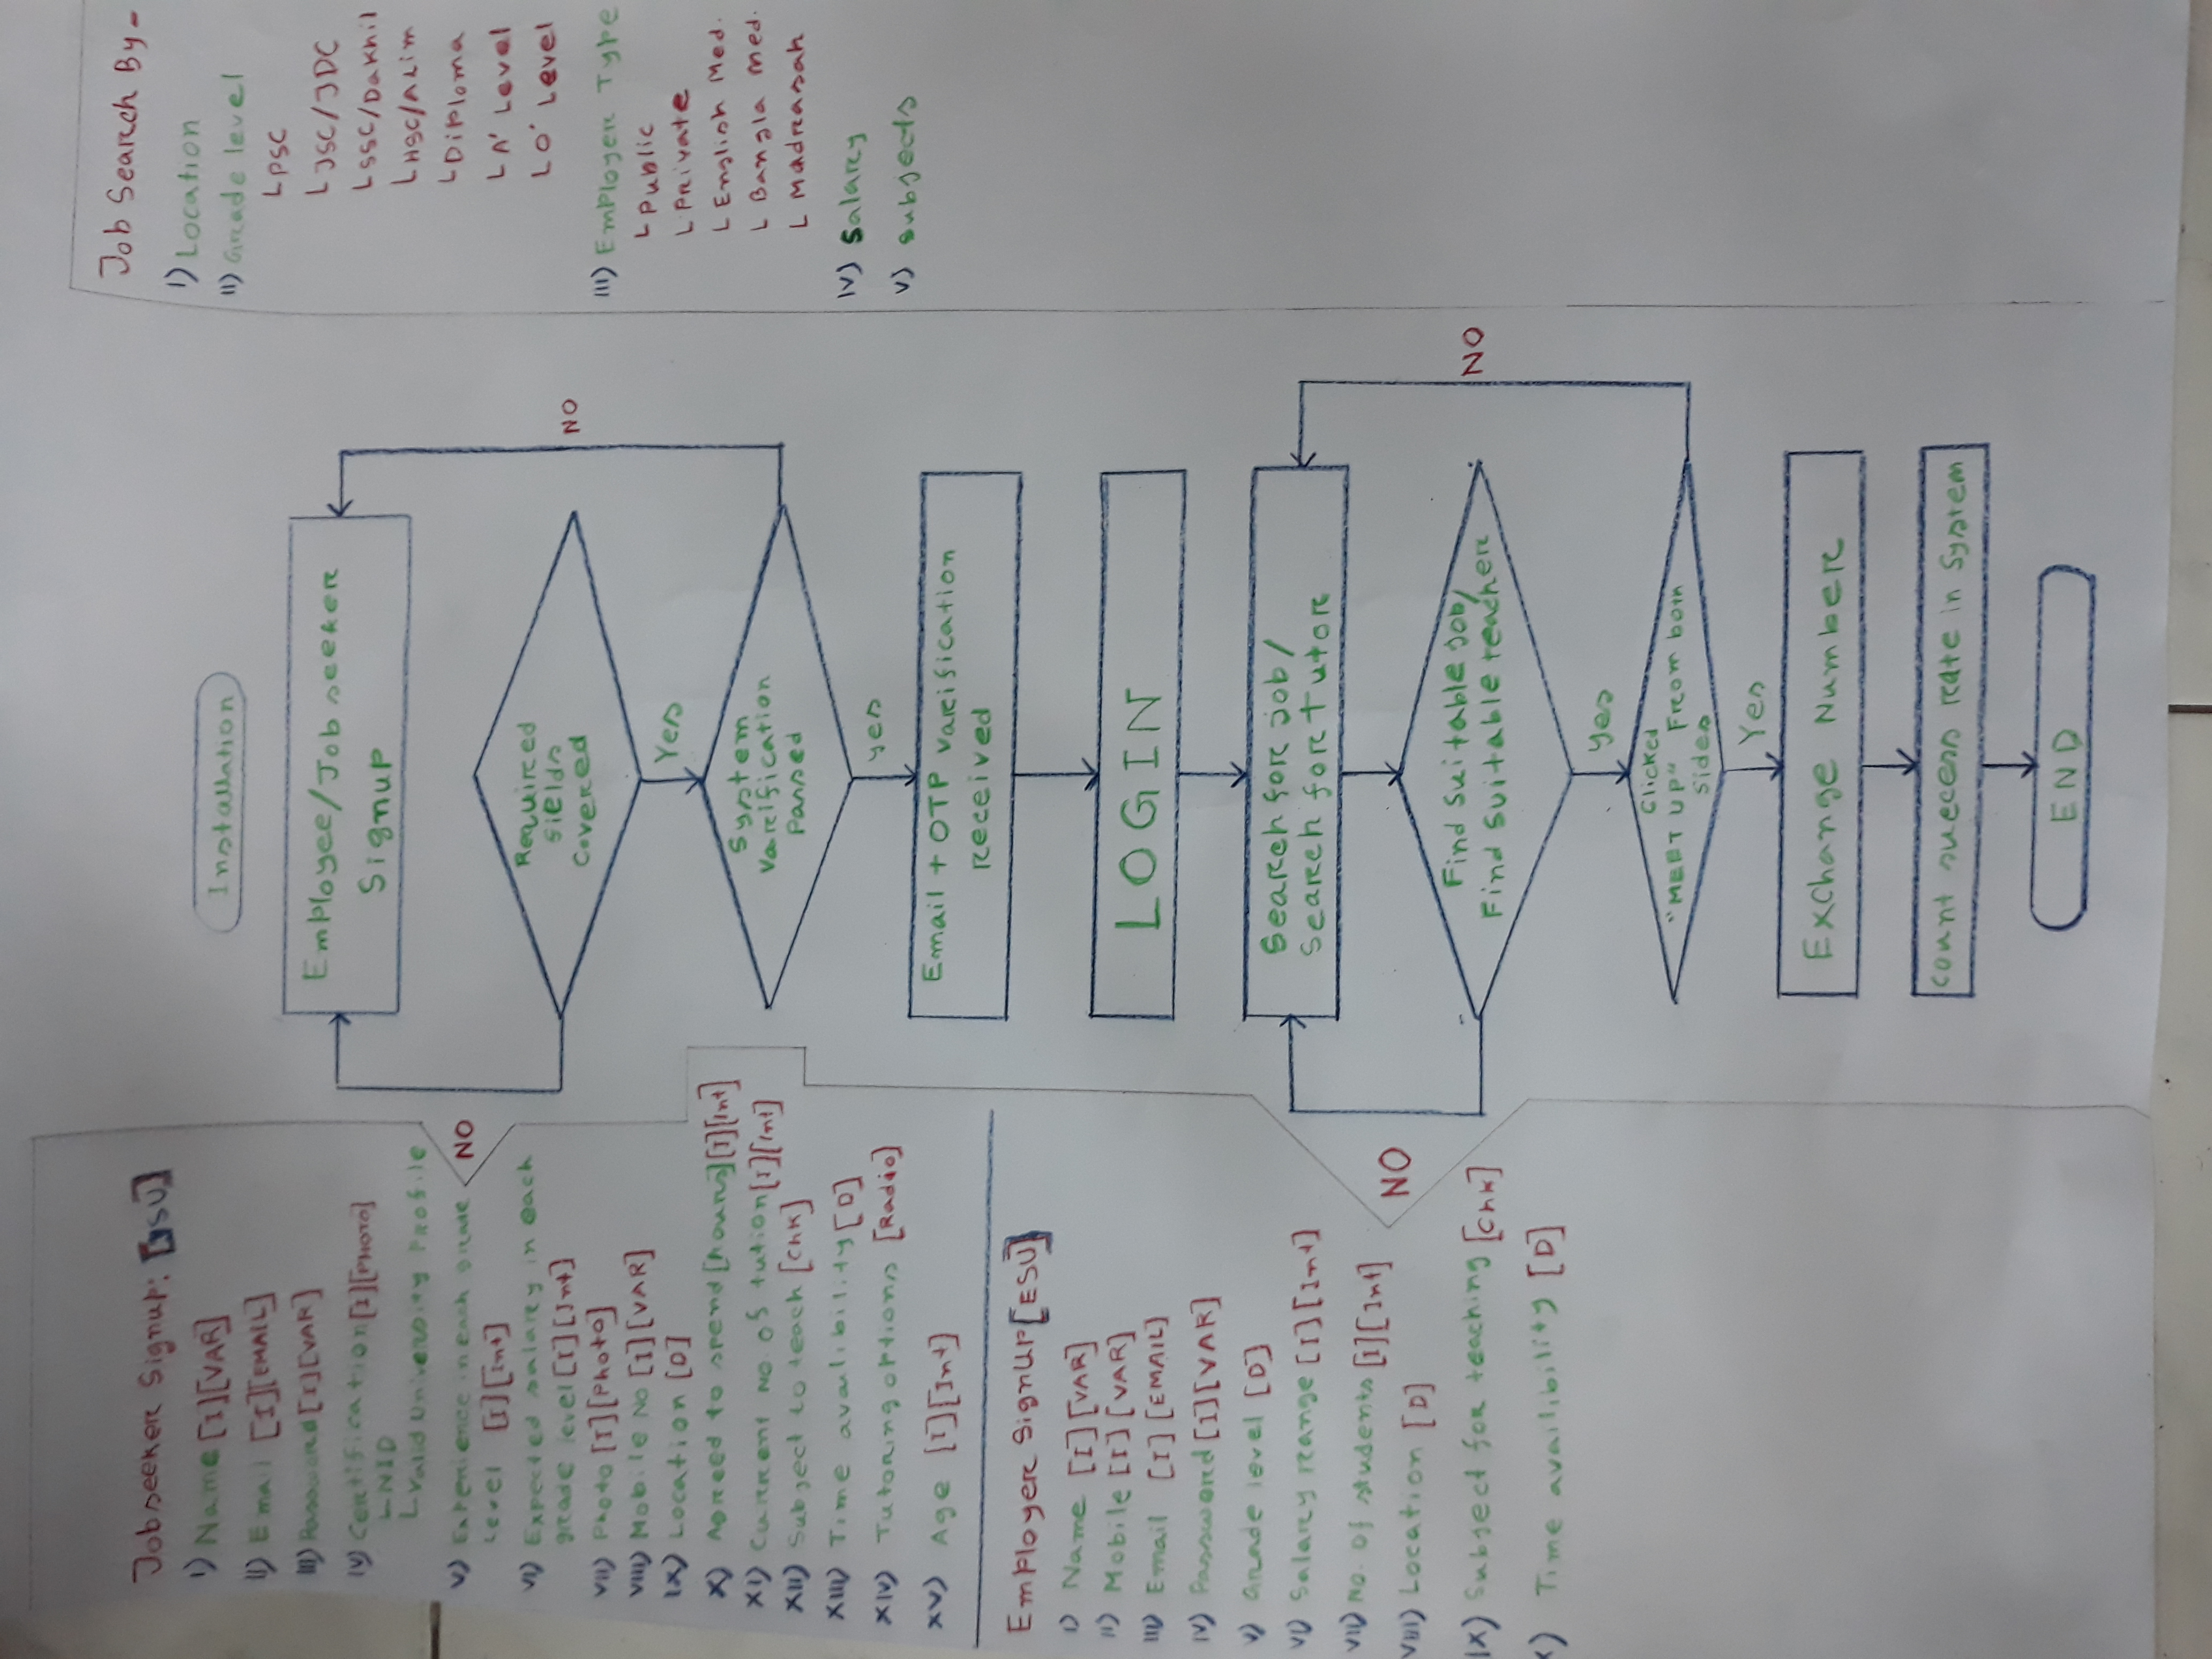 Jobseeker Signup: [JSU]
I) Name [I][VAR]
II) Email [I][EMAIL]
III) Password [I][VAR]
IV) Certification [I][PHOTO]
L NID
L Valid University Profile
V) Experience in each grade
Level [I][Int]
VI) Expected salary in each
grade level [I][Int]
VII) Photo [I][Photo]
VIII) Mobile No [I][VAR]
IX) Location [D]
X) Agreed to spend [hours] [I][Int]
XI) Current No. of tution [I][Int]
XII) Subject to teach [Chk]
XIII) Time availibility [D]
XIV) Tutoring options [Radio]
XV) Age [I][Int]
Employer SignUp [ESU]
I) Name [I][VAR]
II) Mobile [I][VAR]
III) Email [I][EMAIL]
IV) Password [I][VAR]
V) Grade level [D]
VI) Salary range [I][Int]
VII) No. of students [I][Int]
VIII) Location [D]
IX) Subject for teaching [Chk]
X) Time availibility [D]
Installation
Employee/Job seeker
Signup
NO
Required
fields
Covered
NO
Yes
System
Varification
Passed
yes
Email + OTP varification
received
LOGIN
Search for job/
Search for Tutor
NO
Find Suitable job/
Find Suitable teacher
NO
Yes
Clicked
"MEET UP" From both
sides
Yes
Exchange Number
Count success rate in System
END
Job Search By-
I) Location
II) Grade level
L PSC
L JSC/JDC
L SSC/Dakhil
L HSC/Alim
L Diploma
L A' Level
L O' Level
III) Employer Type
L Public
L Private
L English Med.
L Bangla Med.
L Madrasah
IV) Salary
V) Subjects